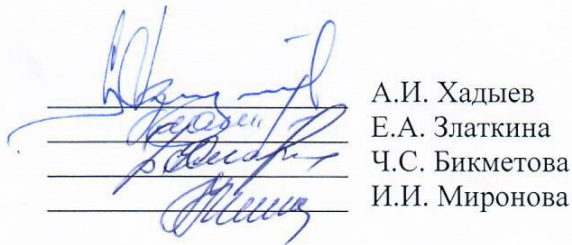 А.И. Хадыев
Е.А. Златкина
Ч.С. Бикметова
И.И. Миронова